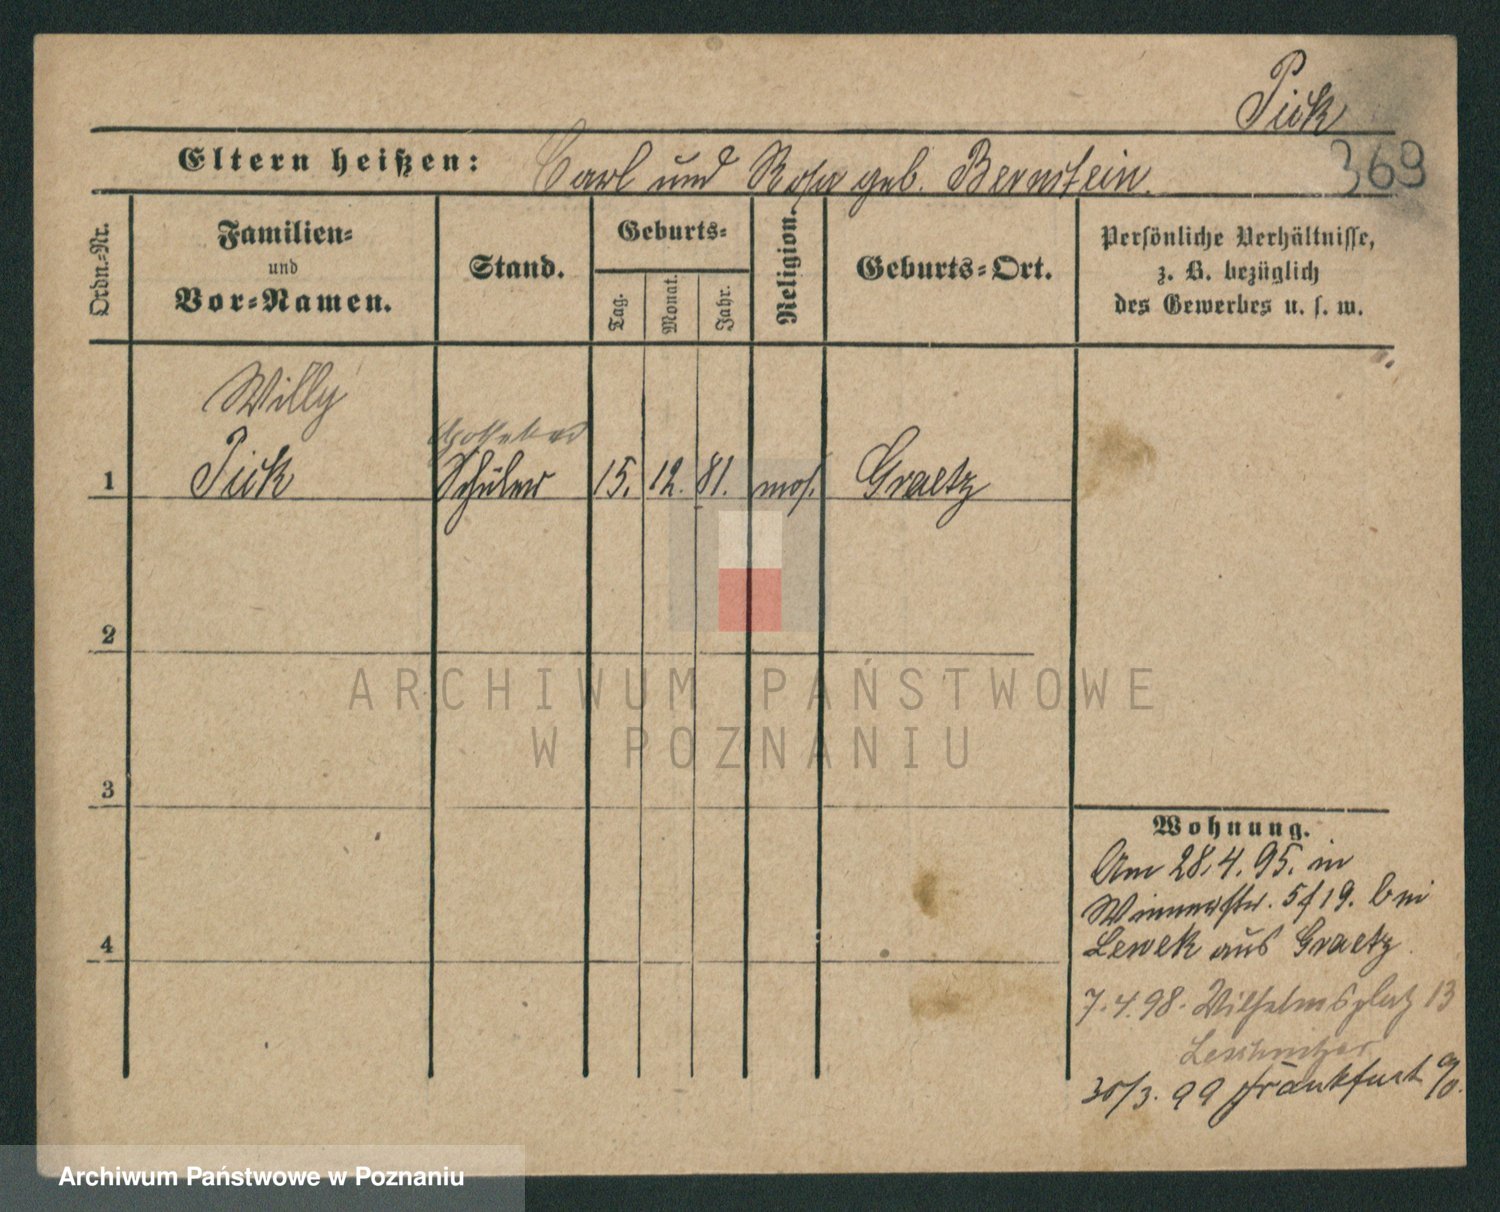 Pick
369
Eltern heißen: Carl und Rosa geb. Bernstein.
Ordn.-Nr.
Familien-
und
Vor-Namen.
Stand.
Geburts-
Tag.
Monat.
Jahr.
Religion.
Geburts-Ort.
Persönliche Verhältnisse,
z. B. bezüglich
des Gewerbes u. s. w.
Willy
1 Pick Schüler 15. 12. 81. mos. Graetz
2
3
4
ARCHIWUM PAŃSTWOWE
W POZNANIU
Wohnung.
Am 28.4.95. in
19. bei
Lewek aus Graetz
7.4.98. Wilhelmsplatz 13
Leschnitzer
30/3. 99 Frankfurt a/O.
Archiwum Państwowe w Poznaniu